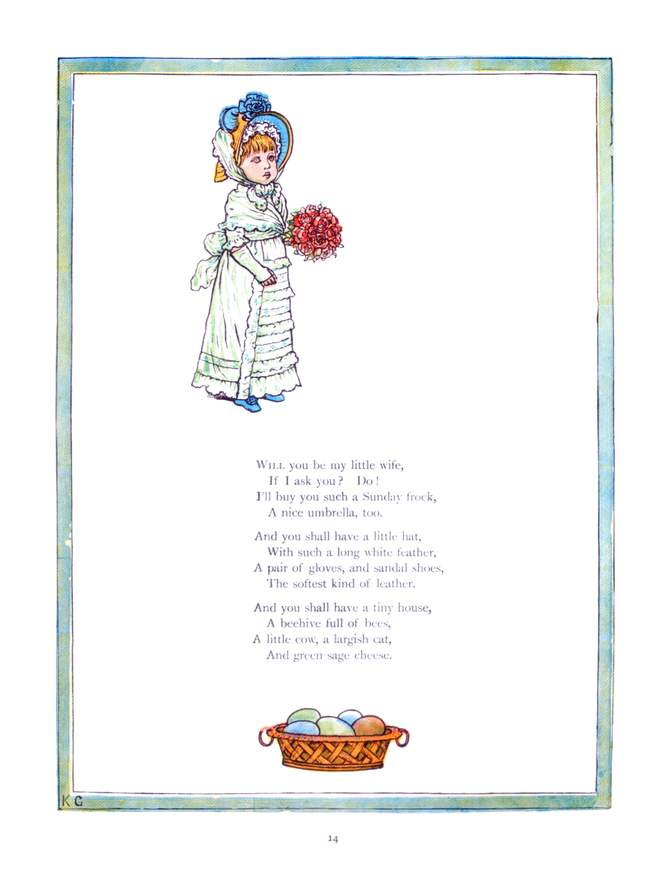 WILL you be my little wife,
If I ask you? Do!
I'll buy you such a Sunday frock,
A nice umbrella, too.
And you shall have a little hat,
With such a long white feather,
A pair of gloves, and sandal shoes,
The softest kind of leather.
And you shall have a tiny house,
A beehive full of bees,
A little cow, a largish cat,
And green sage cheese.
K G
14